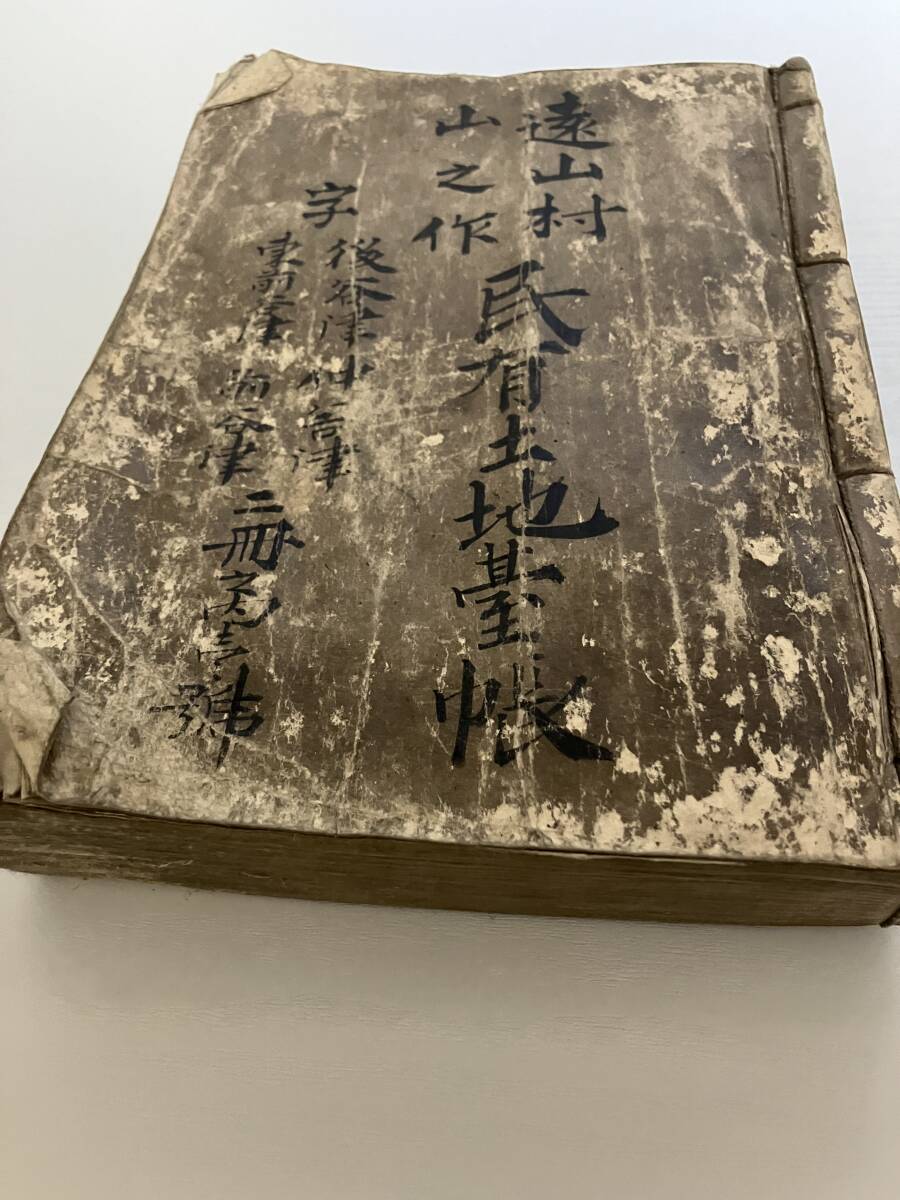 遠山村
山之作
民有土地臺帳
字
後谷津 仲谷津
東南谷津 南谷津
二冊之內壱號